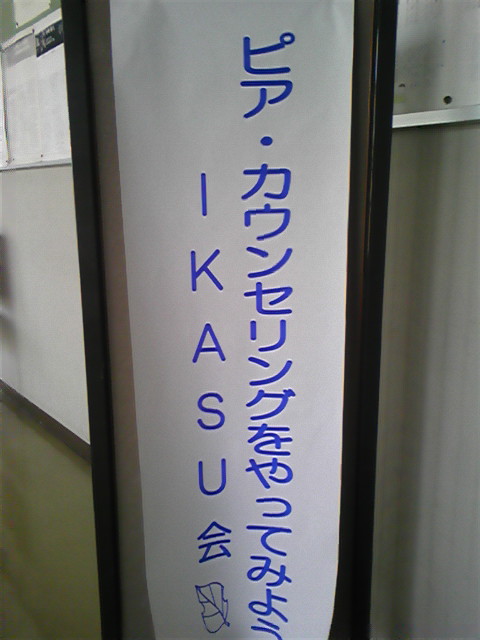 ピア・カウンセリングをやってみよう
IKASU会